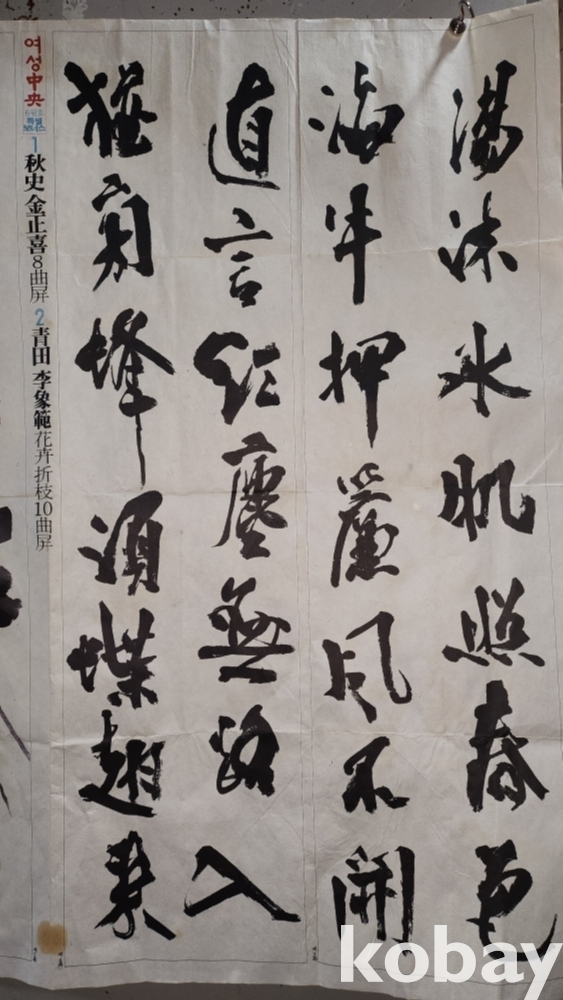 湯沐冰肌照春色
海牛押簾風不開
直言紅塵無路入
猶旁蜂須蝶翅來
여성中央
특별
보너스
1 秋史 金正喜 8曲屏 2 靑田 李象範 花卉折枝10曲屏
kobay